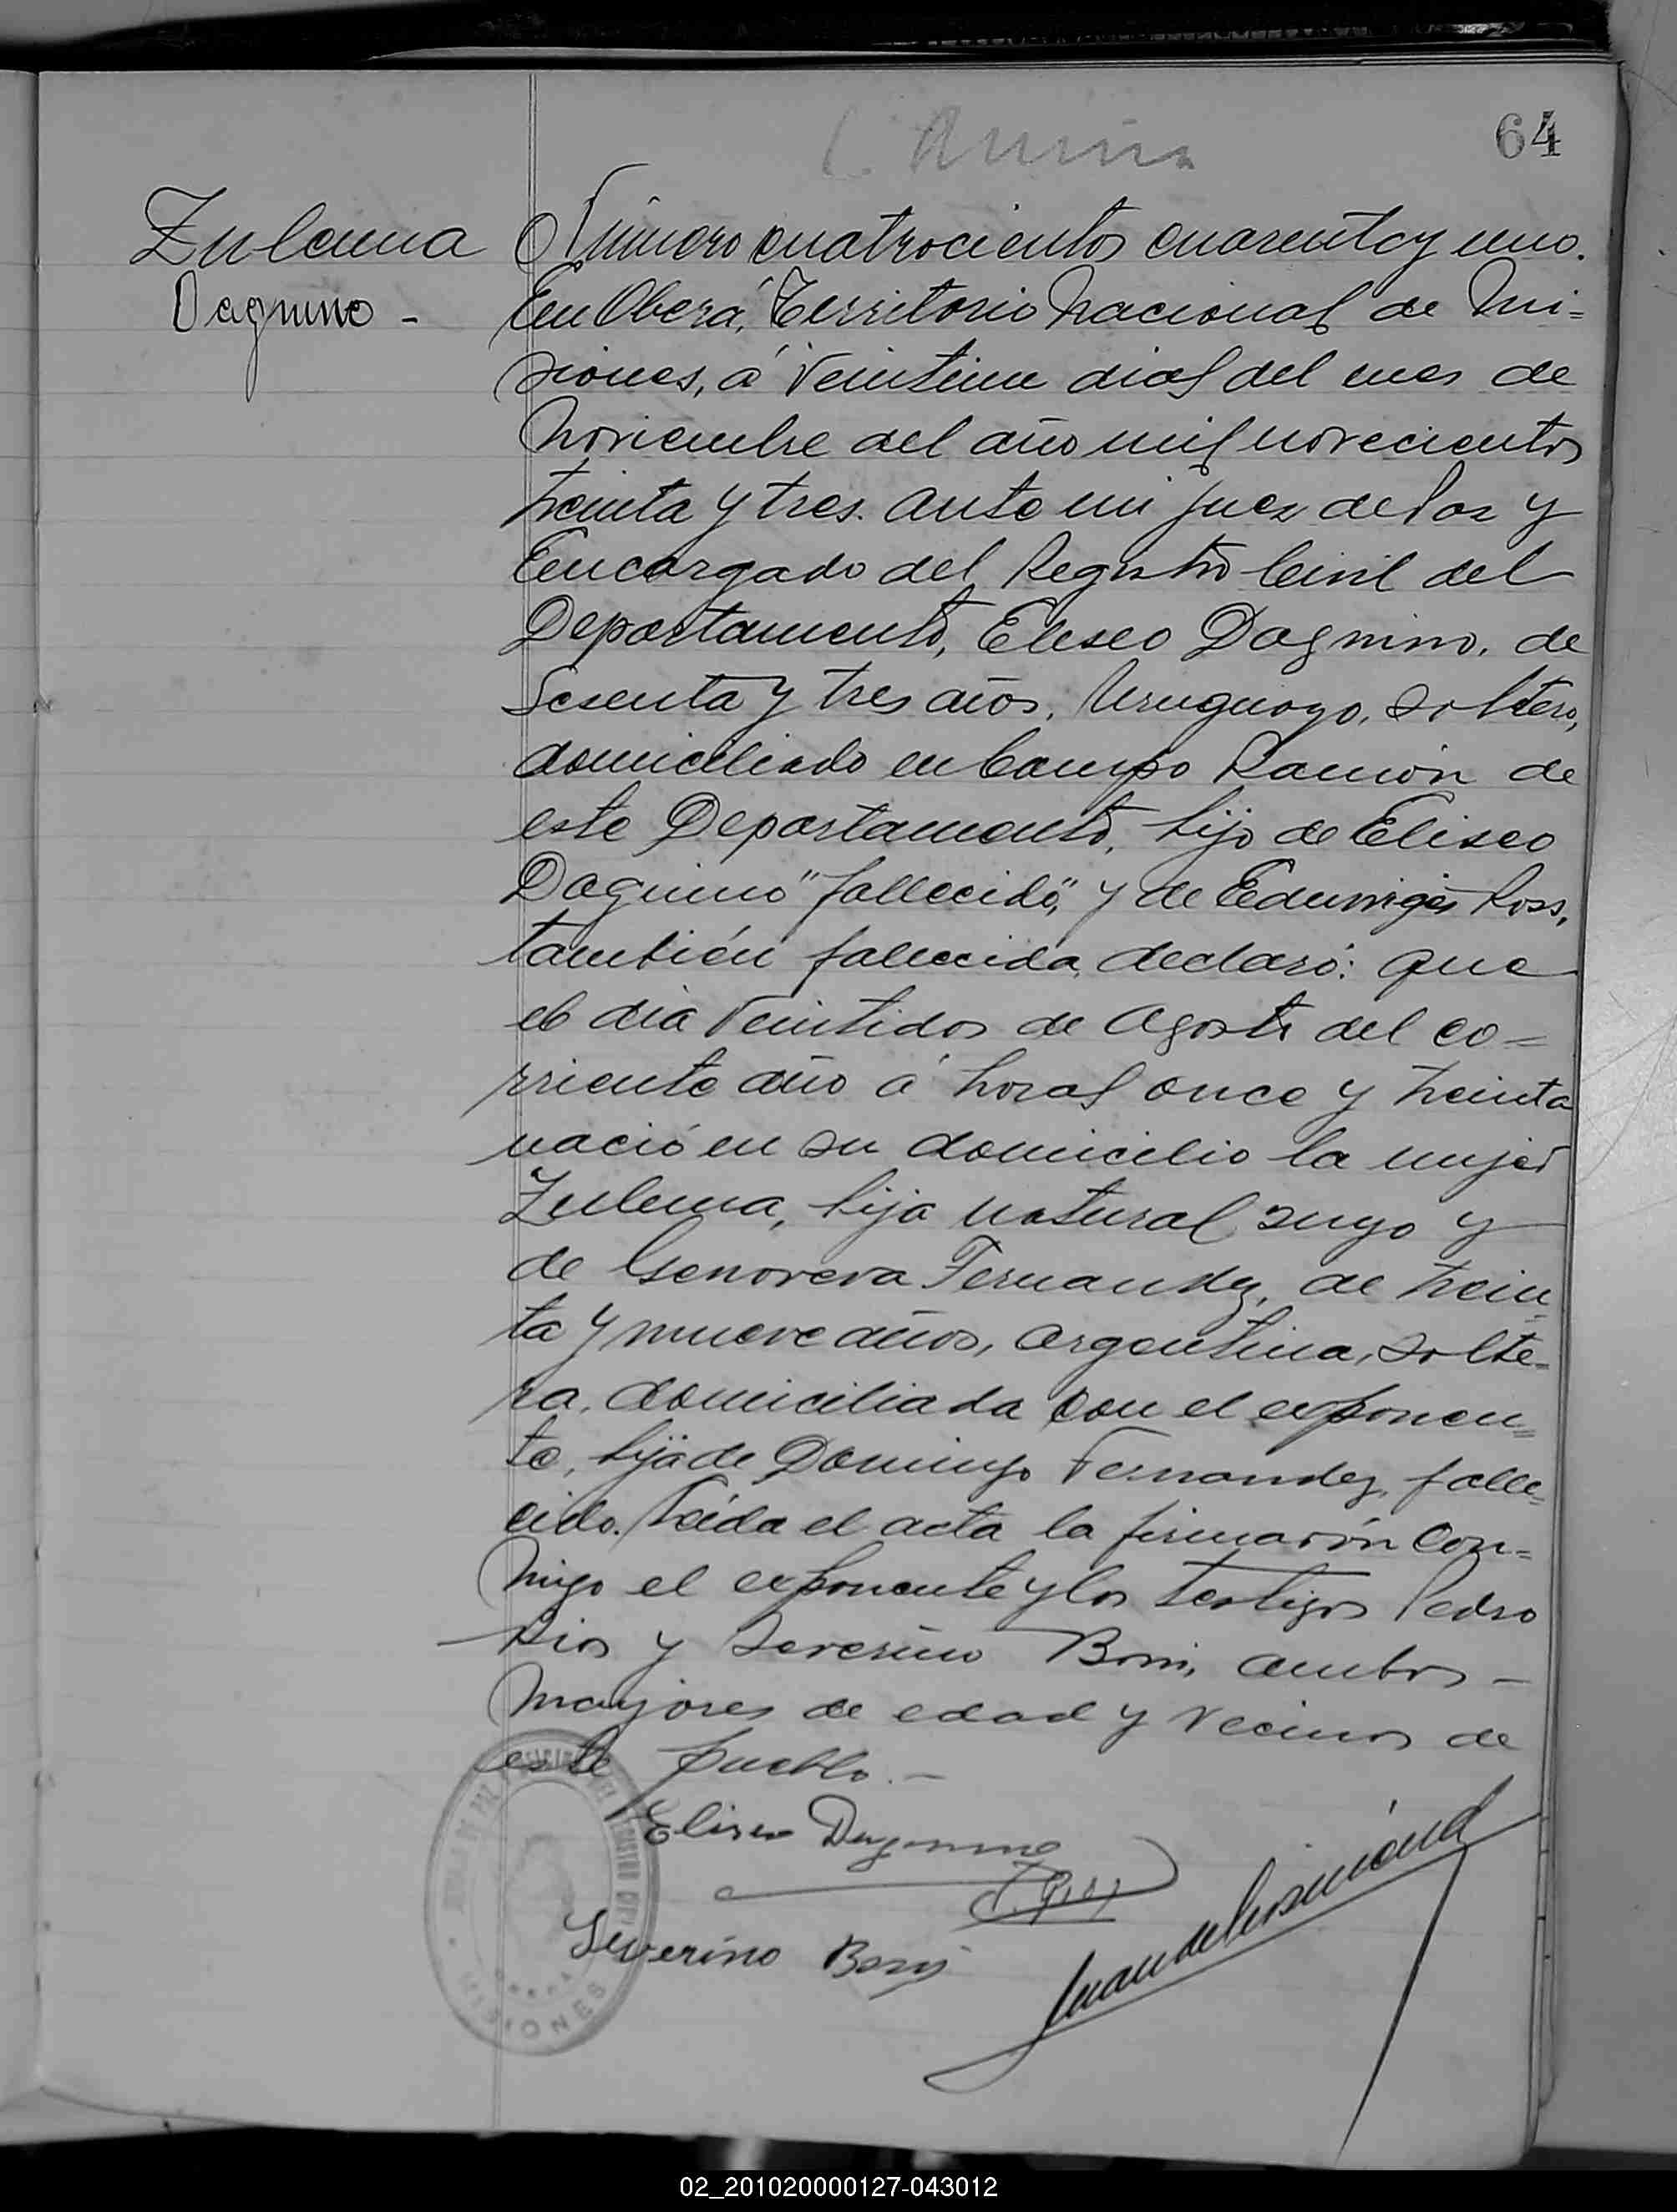 64
Zulema
Dagnino -
Número cuatrocientos cuarenta y uno.
En Oberá, Territorio Nacional de Mi=
siones, á veintiun dias del mes de
Noviembre del año mil novecientos
treinta y tres. Ante mi Juez de Paz y
Encargado del Registro Civil del
Departamento, Eliseo Dagnino, de
Sesenta y tres años, Uruguayo, soltero,
domiciliado en Campo Ramón de
este Departamento, hijo de Eliseo
Dagnino "fallecido", y de Eduviges Ross,
también fallecida, declaró: Que
el dia veintidos de Agosto del co=
rriente año á horas once y treinta
nació en su domicilio la mujer
Zulema, hija natural suya y
de Genoveva Fernandez, de trein=
ta y nueve años, argentina, solte=
ra, domiciliada con el exponen=
te, hija de Domingo Fernandez, falle=
cido. Leida el acta la firmarón con=
migo el exponente y los testigos Pedro
Rios y Severino Boni, ambos -
mayores de edad y vecinos de
este pueblo. -
Eliseo Dagnino
Severino Boni
MISIONES
02_201020000127-043012